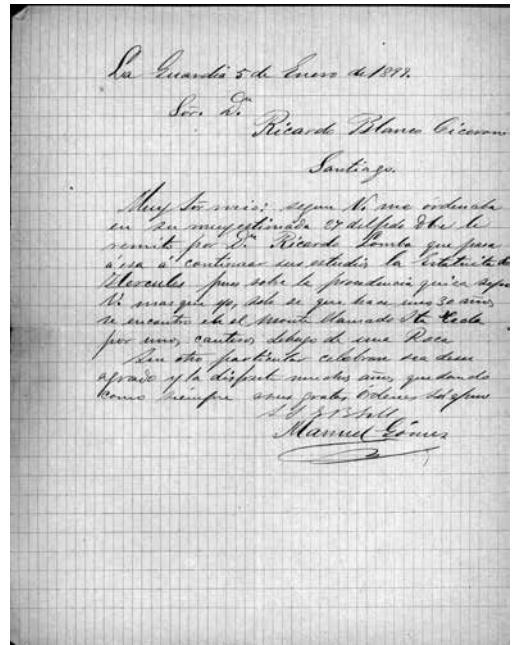 La Guardia 5 de Enero de 1899.
Sor. Dn
Ricardo Blanco Cicerón
Santiago.
Muy Sor mio: segun V. me ordenaba
en su muy estimada 27 del pdo Dbe le
remito por Dn Ricardo Lomba que pasa
á esa á continuar sus estudios la Estatuita de
Hercules pues sobre la procedencia quiza sepa
V. mas que yo, solo se que hace unos 30 años
se encontro en el monte llamado Sta Tecla
por unos canteros debajo de una Roca
Sin otro particular celebraré sea de su
agrado y la disfrute muchos años, quedando
como siempre a sus gratas Ordenes
Manuel Gómez